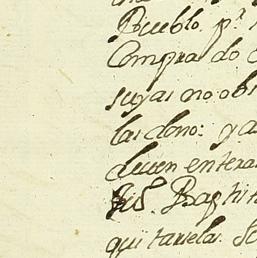 Pueblo. p.ª
Compra do
suyas no obs
las dono: y a
duien entera
Bap ti
qui tarsela. Se